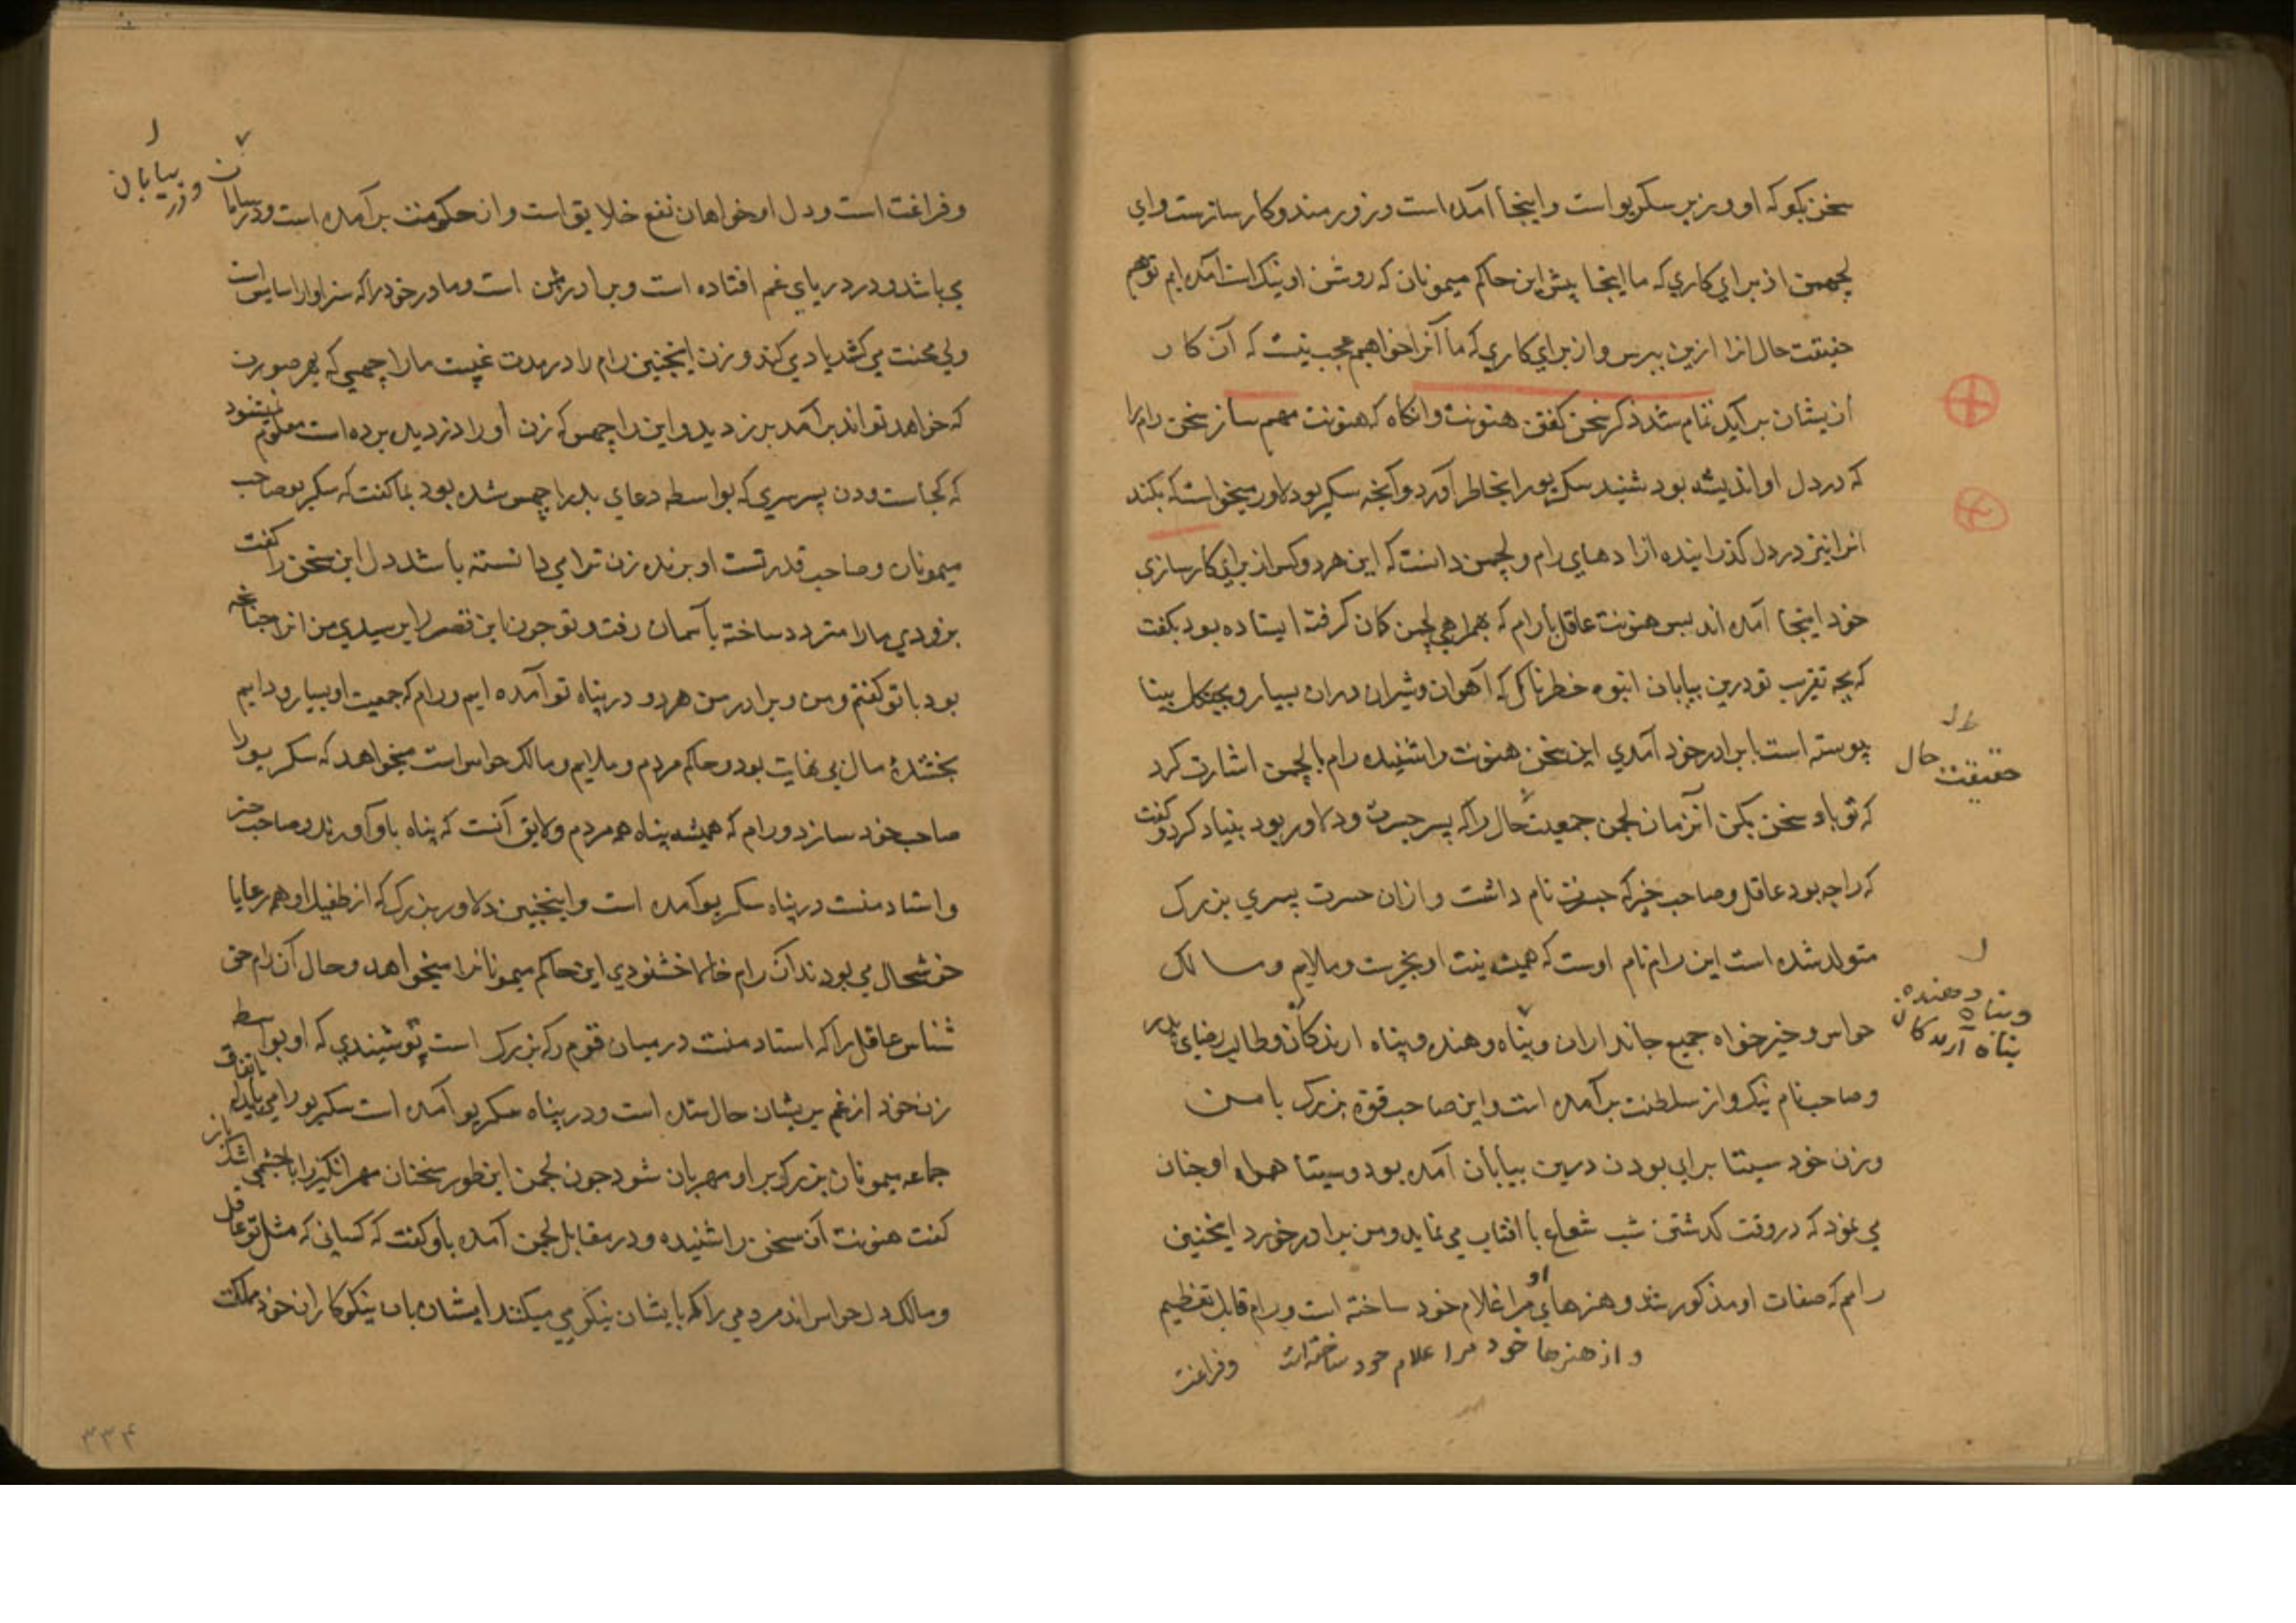 سخن بکو که او وزیر سکریو است و اینجا آمده است و زورمند و کارسازست و ای
لچهمن از برای کاری که ما اینجا پیش این حاکم میمونان که روشن او نیک است آمده ایم تو هم
حقیقت حال انرا ازین بپرس و از برای کاری که ما آنرا خواهیم عجب نیست که آن کار
ازیشان برآید تمام شد ذکر سخن کفتن هنونت و انکاه که هنونت مهم ساز سخن رام را
که در دل او اندیشه بود شنید سکریو را بخاطر آورد و آنچه سکریو دلاور میخواست که بکند
انرا نیز در دل کذرانیده از ادهای رام و لچمن دانست که این هر دو کس از برای کارسازی
خود اینجا آمده اند پس هنونت عاقل با رام که همراهی لچمن کمان کرفته ایستاده بود بکفت
که بچه تقریب تو درین بیابان انبوه خطرناک که آهوان و شیران دران بسیار و بجنکل بینا
پیوسته است با برادر خود آمدی این سخن هنونت را شنیده رام با لچمن اشارت کرد
که تو باو سخن بکن آنزمان لچمن جمعیت حال را که پسر جسرت و دلاور بود بنیاد کرد و کفت
حقیقت حال
که راجه بود عاقل و صاحب خیر که جسرت نام داشت و ازان جسرت پسری بزرک
متولد شده است این رام نام اوست که همیشه نیت او بخیرست و ملایم و مالک
حواس و خیرخواه جمیع جانداران و پناه دهنده و پناه ارندکان و طالب رضای پدر
و پناه دهنده پناه آرندکان
و صاحب نام نیک و از سلطنت برآمده است و این صاحب قوة بزرک با من
و زن خود سیتا برای بودن درین بیابان آمده بود و سیتا همراه او چنان
می نمود که در وقت کذشتن شب شعاع با افتاب می نماید و من برادر خورد اینچنین
رامم که صفات او مذکور شد و هنرهای او مرا غلام خود ساخته است و رام قابل تعظیم
و از هنرها خود مرا غلام خود ساخته است وفراغت
و فراغت است و دل او خواهان نفع خلایق است و از حکومت برآمده است و در بیابان
و در بیابان
می باشد و در دریای غم افتاده است و برادر من است و مادر خود را که سزاوار اسایش است
و لی محنت می کشد یاد می کند و زن اینچنین رام را در مدت غیبت ما راچهسی که بهر صورت
که خواهد تواند برآمد بدزدید و این راچهس که زن او را دزدیده برده است معلوم نمیشود
که کجاست و دن پسر سری که بواسطه دعای بد راچهس شده بود بما کفت که سکریو صاحب
میمونان و صاحب قدرتست او برنده زن ترا می دانسته باشد دل این سخن را کفت
بزودی ما را متردد ساخته بآسمان رفت و تو چون این قصه را پرسیدی من انرا چنانچه
بود با تو کفتم و من و برادر من هر دو در پناه تو آمده ایم و رام که جمعیت او بسیار و دایم
بخشندۀ مال بی نهایت بود و حاکم مردم و ملایم و مالک حواس است میخواهد که سکریو را
صاحب خود سازد و رام که همیشه پناه همه مردم و لایق آنست که پناه باو آورند و صاحب خیر
و استاد منست در پناه سکریو آمده است و اینچنین دلاور بزرک که از طفیل او همه رعایا
خوشحال می بودند آن رام خاطر خشنودی این حاکم میمونانرا میخواهد و حال آن رام حق
شناس عاقل را که استاد منست درمیان قوم رکه بزرک است تو شنیدی که او بواسطه
زن خود از غم پریشان حال شده است و در پناه سکریو آمده است سکریو را می باید که باتفاق
جماعه میمونان بزرک بر او مهربان شود چون لچمن این طور سخنان مهر انکیز را با چشمی اشک ریز
کفت هنونت آن سخن را شنیده و در مقابل لچمن آمده باو کفت که کسانی که مثل تو عاقل
و مالک دل حواس اند مردمی را که با ایشان نیکویی میکنند ایشان باب نیکوکاران خود مملکت
۳۳۴